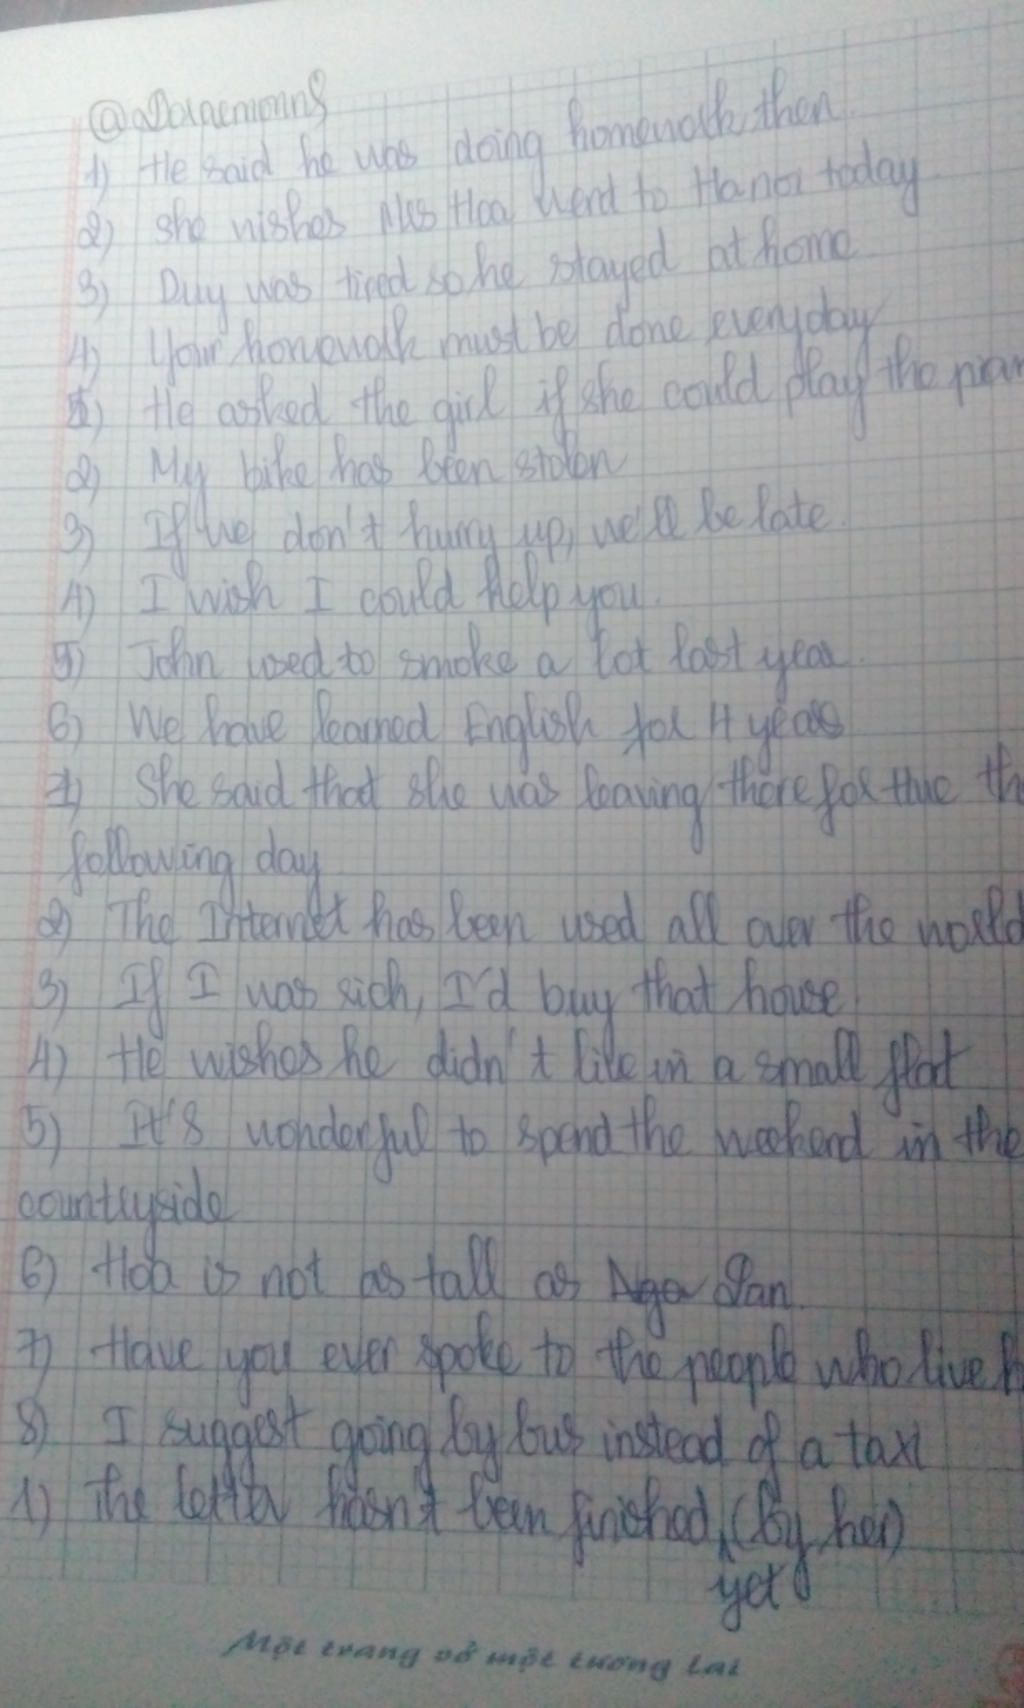 1) He said he was doing homework then.
2) She wishes Mrs Hoa went to Hanoi today
3) Duy was tired so he stayed at home
4) Your homework must be done everyday
1) He asked the girl if she could play the
2) My bike has been stolen
3) If we don't hurry up, we'll be late.
4) I wish I could help you.
5) John used to smoke a lot last year.
6) We have learned English for 4 years
1) She said that she was leaving there for the
following day
2) The Internet has been used all over the world
3) If I was rich, I'd buy that house.
4) He wishes he didn't live in a small flat
5) It's wonderful to spend the weekend in the
countryside
6) Hoa is not as tall as Lan.
7) Have you ever spoke to the people who live
8) I suggest going by bus instead of a taxi
1) The letter hasn't been finished (by her)
yet
Một trang vở một tương lai